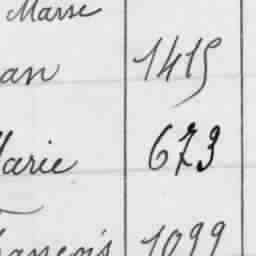 Marse
an 1415
Marie 673
François 1099